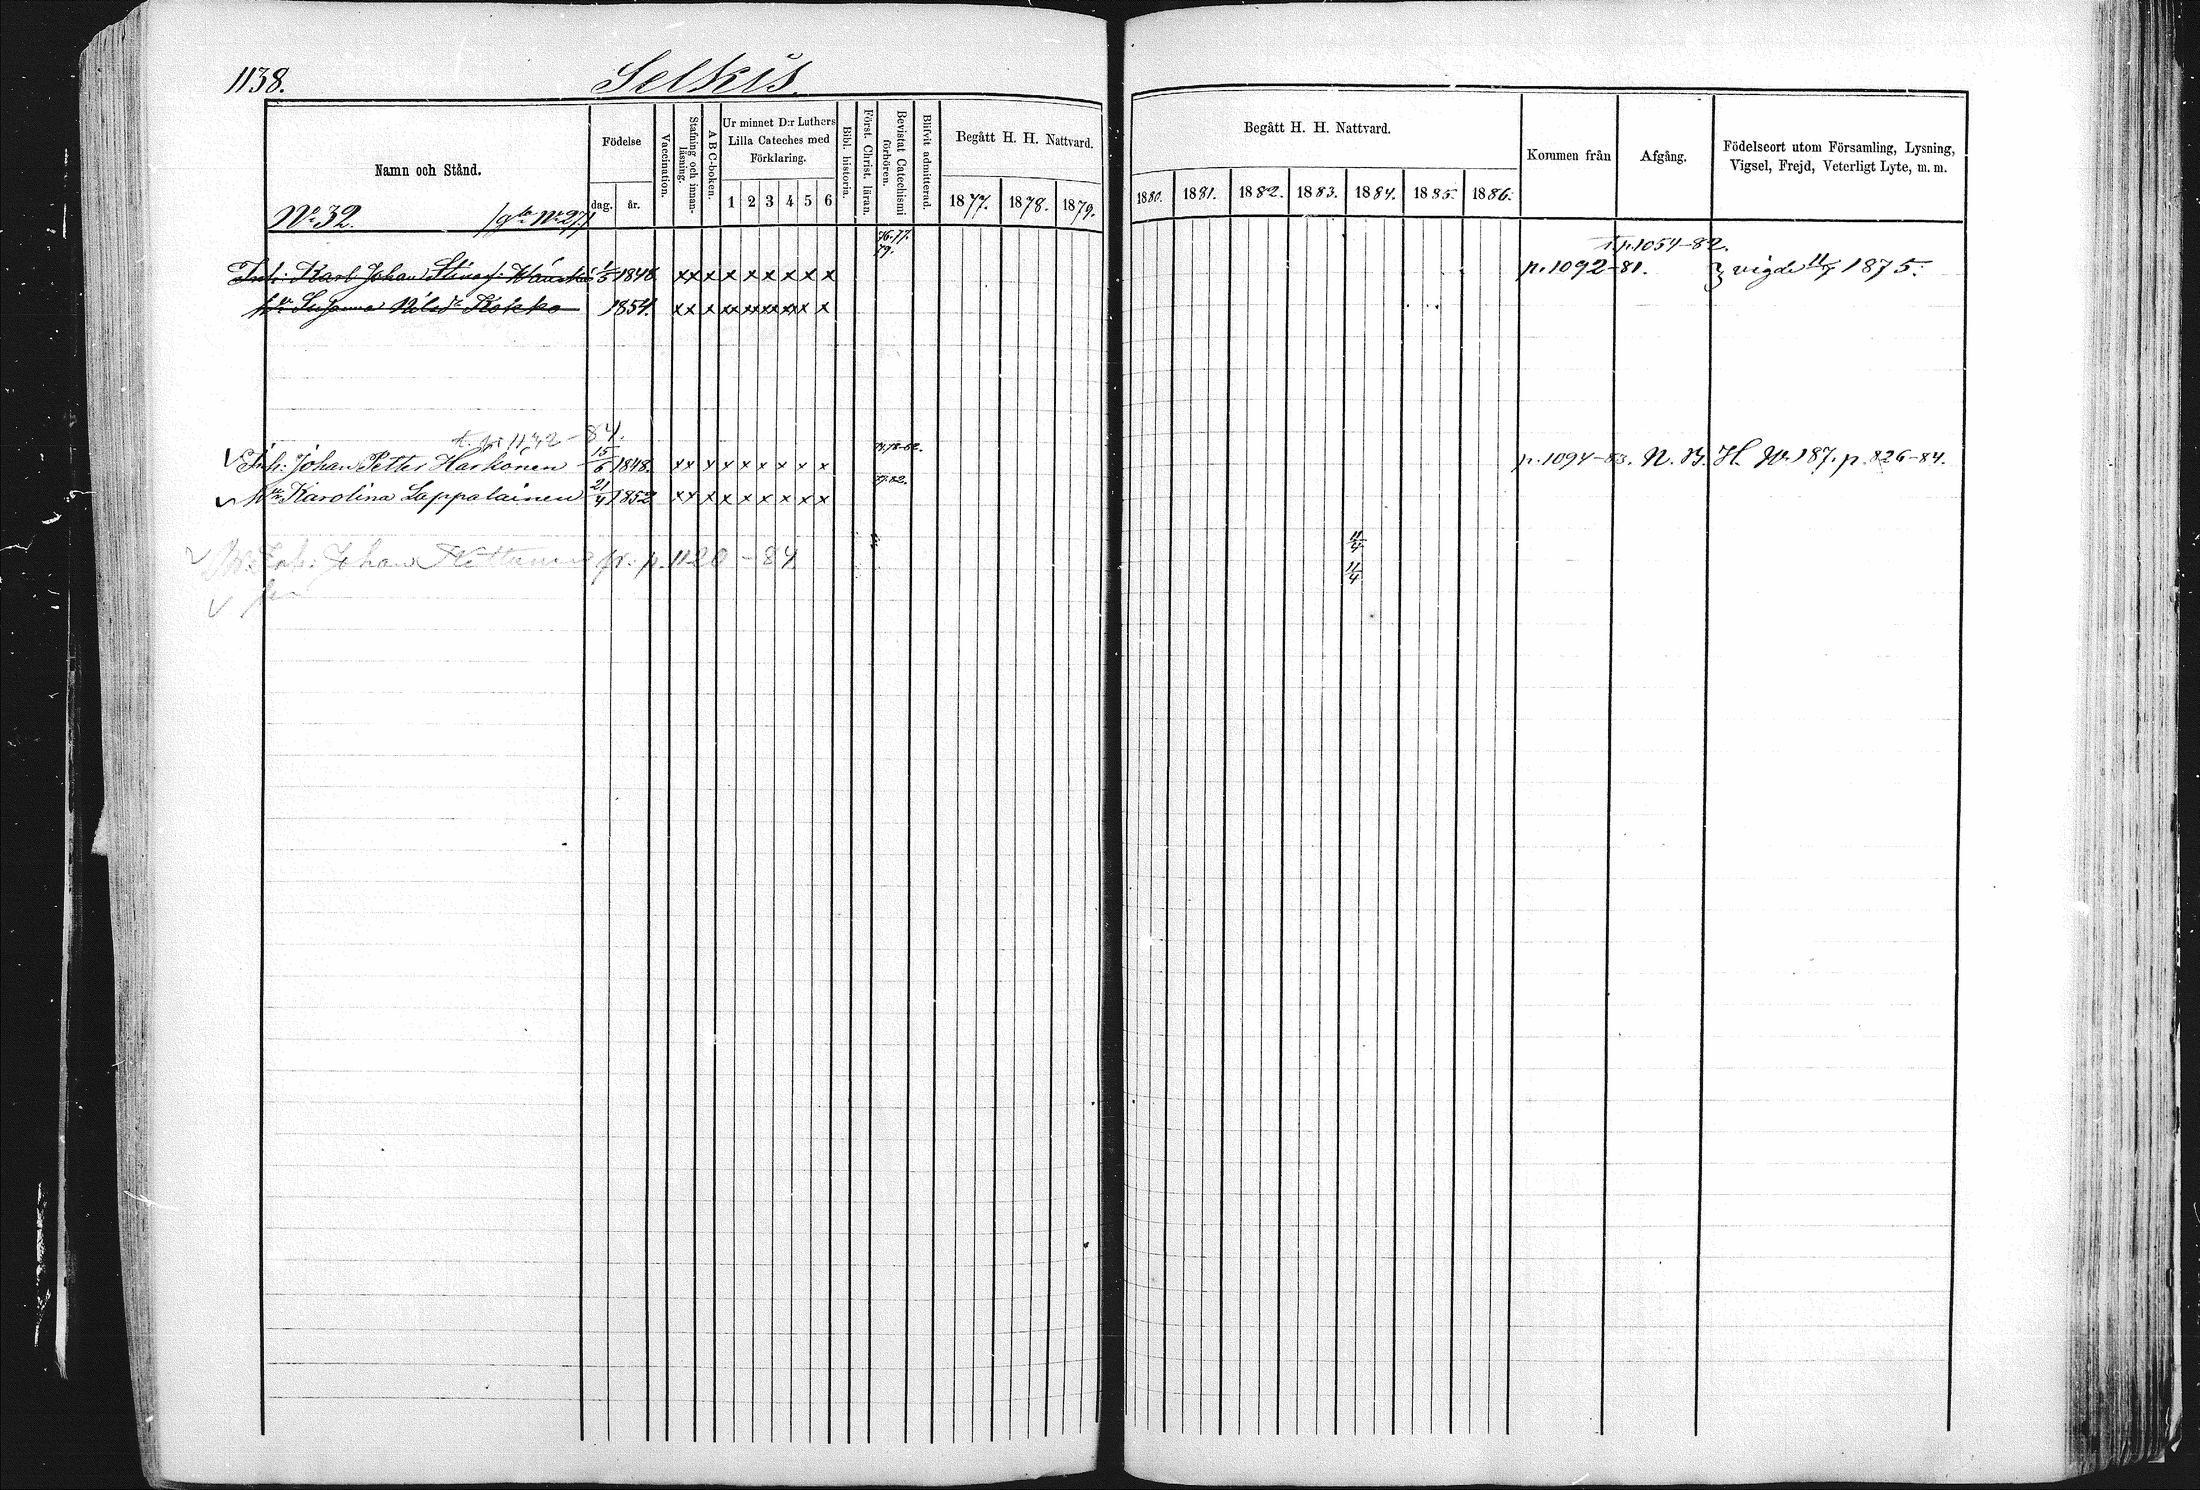 1138.
Selkis.
Namn och Stånd.
Födelse
dag.
år.
Vaccination.
Stafning och innanläsning.
A B C-boken.
Ur minnet D:r Luthers
Lilla Cateches med
Förklaring.
1 2 3 4 5 6
Bibl. historia.
Först. Christ. läran.
Bevistat Catechismi
förhören.
Blifvit admitterad.
Begått H. H. Nattvard.
1877. 1878. 1879.
Begått H. H. Nattvard.
1880. 1881. 1882. 1883. 1884. 1885. 1886.
Kommen från
Afgång.
Födelseort utom Församling, Lysning,
Vigsel, Frejd, Veterligt Lyte, m. m.
No 32. No 27
76. 77.
79.
p. 1054-82.
Inh: Karl Johan 1848 xx x x x x x x x p. 1092-81. vigde 11/7 1875.
Susanna Nilsdr Kokko 1854. xx x xx xx xx xx x x
t. p. 1142-84.
Inh: Johan Petter Harkonen 15/6 1848. xx x x x x x x x p. 1094-83. N. B. H. No 187. p. 826-84.
Karolina Lappalainen 21/4 1852 xx x x x x x x x 82.
Inh: Johan fr. p. 1120-84
11/4
11/4